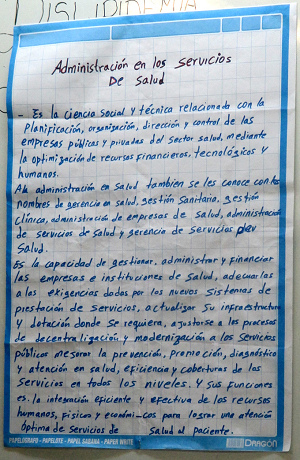 DISLIPIDEMIA
Administración en los Servicios
De Salud
- Es la ciencia social y técnica relacionada con la
Planificación, organización, dirección y control de las
empresas públicas y privadas del Sector salud, mediante
la optimización de recursos financieros, tecnológicos y
humanos.
A la administración en Salud también se les conoce con los
nombres de gerencia en salud, gestión Sanitaria, gestión
clínica, administración de empresas de salud, administración
de servicios de Salud y gerencia de servicios de
Salud.
Es la capacidad de gestionar, administrar y financiar
las empresas e instituciones de Salud, adecuarlas
a las exigencias dadas por los nuevos Sistemas de
prestación de Servicios, actualizar Su infraestructura
y dotación donde Se requiera, ajustarse a los procesos
de decentralización y modernización a los Servicios
públicos mejorar la prevención, Promoción, diagnóstico
y atención en salud, eficiencia y coberturas de los
Servicios en todos los niveles. Y sus funciones
es: la integración eficiente y efectiva de los recursos
humanos, físicos y económicos para lograr una atención
Óptima de Servicios de Salud al paciente.
PAPELOGRAFO - PAPELOTE - PAPEL SABANA - PAPER WHITE
DRAGÓN